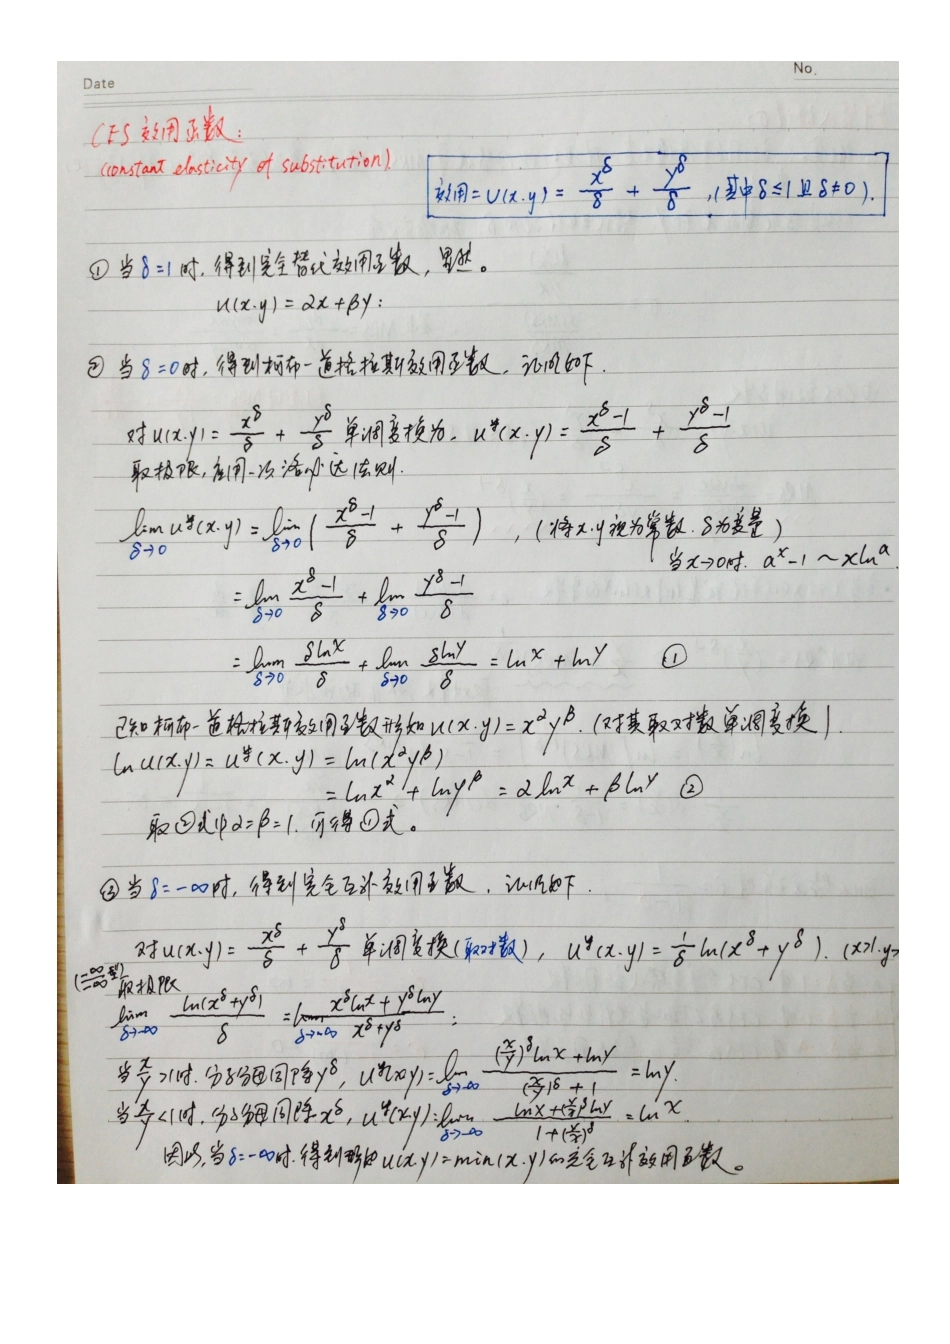 Date
No.
CES 效用函数:
(constant elasticity of substitution).
效用 = U(x.y) = x^δ/δ + y^δ/δ ,(其中 δ≤1 且 δ≠0).
① 当 δ=1 时, 得到完全替代效用函数, 显然。
u(x.y) = αx+βy:
② 当 δ=0时, 得到柯布-道格拉斯效用函数, 证明如下.
对 u(x.y) = x^δ/δ + y^δ/δ 单调变换为. u*(x.y) = (x^δ-1)/δ + (y^δ-1)/δ
取极限, 应用一次洛必达法则.
lim_{δ→0} u*(x.y) = lim_{δ→0} ( (x^δ-1)/δ + (y^δ-1)/δ ) , (将x.y视为常数. δ为变量)
当x→0时. a^x-1 ~ xln^a.
= lim_{δ→0} (x^δ-1)/δ + lim_{δ→0} (y^δ-1)/δ
= lim_{δ→0} δlnx/δ + lim_{δ→0} δlny/δ = lnx + lny ①
已知柯布-道格拉斯效用函数形如 u(x.y) = x^α y^β. (对其取对数单调变换).
ln u(x.y) = u*(x.y) = ln(x^α y^β)
= lnx^α + lny^β = αlnx + βlny ②
取②式中α=β=1. 可得①式。
③ 当 δ=-∞时, 得到完全互补效用函数, 证明如下.
对 u(x.y) = x^δ/δ + y^δ/δ 单调变换(取对数), u*(x.y) = 1/δ ln(x^δ+y^δ). (x>1.y>
(-∞/-∞型)
取极限
lim_{δ→-∞} ln(x^δ+y^δ)/δ = lim_{δ→-∞} (x^δlnx + y^δlny)/(x^δ+y^δ) ;
当 x/y >1时. 分子分母同除y^δ, u*(x.y) = lim_{δ→-∞} ((x/y)^δ lnx + lny)/((x/y)^δ + 1) = lny.
当 x/y <1时. 分子分母同除x^δ, u*(x.y) = lim_{δ→-∞} (lnx + (y/x)^δ lny)/(1+(y/x)^δ) = lnx.
因此, 当 δ=-∞时. 得到形如 u(x.y) = min(x.y) 的完全互补效用函数。